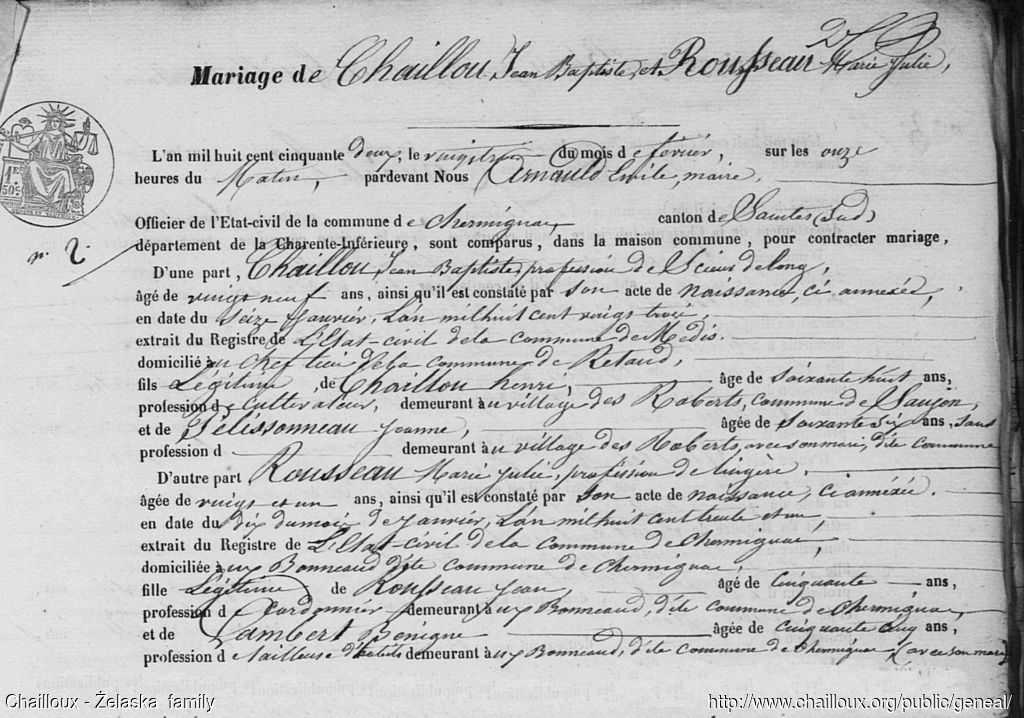 Mariage de Chaillou Jean Baptiste, et Rousseau Marie Julie,
L'an mil huit cent cinquante deux, le vingt trois du mois de février, sur les onze
heures du Matin, pardevant Nous Arnauld Emile, maire.
Officier de l'Etat-civil de la commune de Chermignac, canton de Saintes (Sud)
n°. 2.
département de la Charente-Inférieure, sont comparus, dans la maison commune, pour contracter mariage,
D'une part, Chaillou, Jean Baptiste, profession de Scieur de long,
âgé de vingt neuf ans, ainsi qu'il est constaté par son acte de naissance, ci annexée,
en date du Seize Janvier, L'an mil huit cent vingt trois,
extrait du Registre de L'Etat-civil de la commune de Médis.
domicilié au chef lieu de la commune de Retaud,
fils Légitime, de Chaillou henri, âgé de soixante huit ans,
profession de cultivateur, demeurant au village des Roberts, commune de Saujon,
et de Pelissonneau Jeanne, âgée de soixante six ans, sans
profession d demeurant au village des Roberts, avec son mari, dite commune
D'autre part Rousseau Marie Julie, profession de lingère.
âgée de vingt et un ans, ainsi qu'il est constaté par son acte de naissance, ci annéxée.
en date du dix du mois de Janvier, L'an mil huit cent trente et un,
extrait du Registre de L'Etat-civil de la commune de Chermignac,
domiciliée aux Bonneaud dite commune de Chermignac,
fille Légitime de Rousseau Jean, âgé de Cinquante ans,
profession de Cordonnier demeurant aux Bonneaud, dite commune de Chermignac,
et de Lambert Bénigne âgée de cinquante cinq ans,
profession de tailleuse d'habits demeurant aux Bonneaud, dite commune de Chermignac (avec son mari
Chailloux - Żelaska family
http://www.chailloux.org/public/geneal/